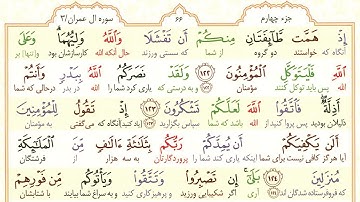 جزء چهارم ۶۶ سوره آل عمران/۳
إِذْ هَمَّت طَّآئِفَتَانِ مِنكُمْ أَن تَفْشَلَا وَاللَّهُ وَلِيُّهُمَا وَعَلَى
آنگاه که خواستند دو گروه از شما که سستی ورزند حال آنکه الله کارسازشان بود و(تنها) بر
اللَّهِ فَلْيَتَوَكَّلِ الْمُؤْمِنُونَ ١٢٢ وَلَقَدْ نَصَرَكُمُ اللَّهُ بِبَدْرٍ وَأَنتُمْ
الله پس باید توکل کنند مؤمنان و به درستی که یاری کرد شما را الله در بدر در حالی که شما
أَذِلَّةٌ فَاتَّقُوا اللَّهَ لَعَلَّكُمْ تَشْكُرُونَ ١٢٣ إِذْ تَقُولُ لِلْمُؤْمِنِينَ
ذلیلان بودید پس پروا کنید از الله باشد که شما سپاس بگزارید آنگاه که می گفتی به مؤمنان
أَلَن يَكْفِيَكُمْ أَن يُمِدَّكُمْ رَبُّكُم بِثَلَاثَةِ ءَالَافٍ مِّنَ الْمَلَآئِكَةِ
آیا هرگز کافی نیست برای شما اینکه یاری کند شما را پروردگارتان به سه هزار از فرشتگان
مُنزَلِينَ ١٢٤ بَلَىٰٓ إِن تَصْبِرُوا وَتَتَّقُوا وَيَأْتُوكُم مِّن فَوْرِهِمْ
که فروفرستاده شدگان اند آری اگر شکیبایی ورزید و پرهیزگاری کنید و به سراغ شما بیایند با شتابشان